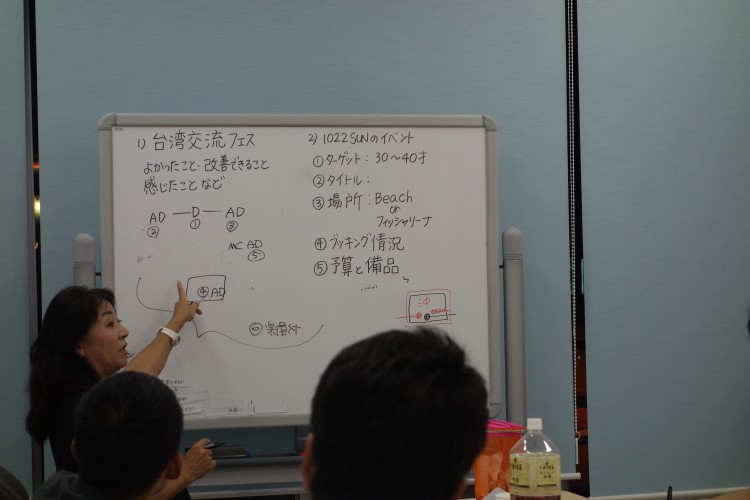 1) 台湾交流フェス
よかったこと・改善できること
感じたこと など
AD — D — AD
② ① ③
MC AD
⑤
④ AD
⑥
2) 1022 SUN のイベント
① ターゲット : 30〜40才
② タイトル :
③ 場所 : Beach
or
フィッシャリーナ
④ ブッキング情況
⑤ 予算と備品